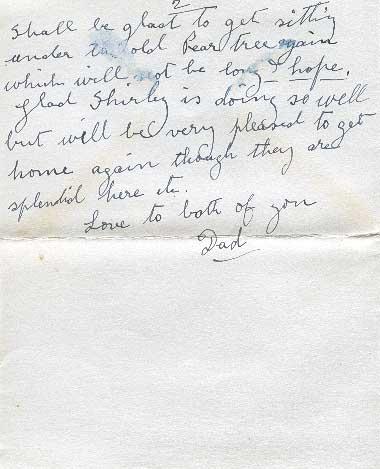 2
Shall be glad to get sitting
under the old Pear tree again
which will not be long I hope.
Glad Shirley is doing so well
but will be very pleased to get
home again though they are
splendid here etc.
Love to both of you
Dad